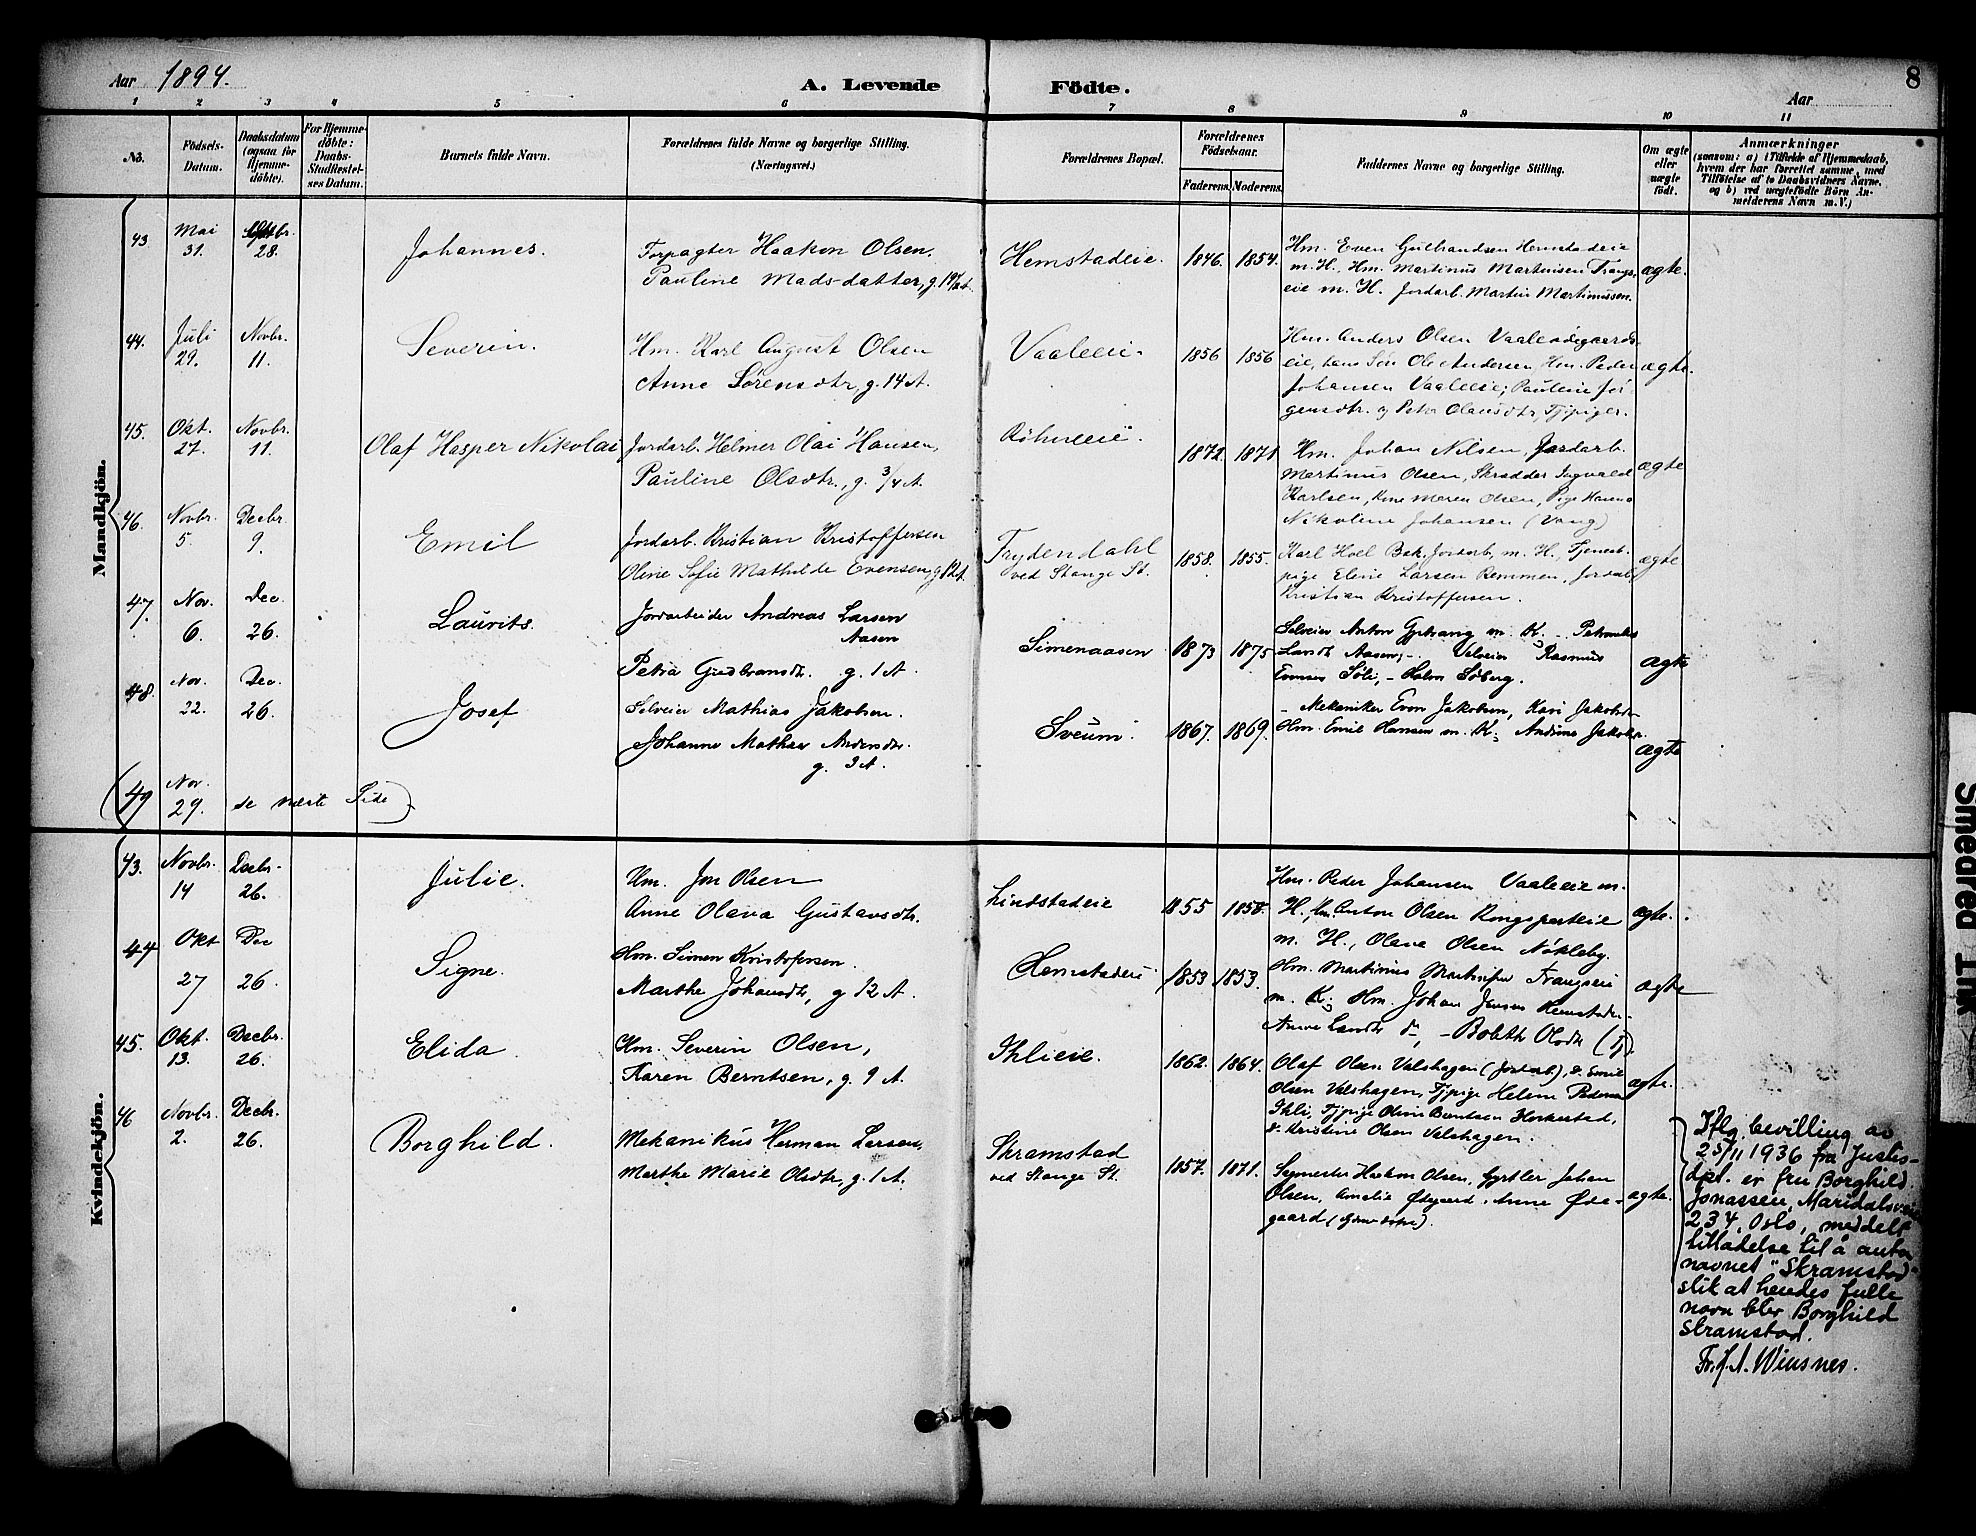 Aar 1894.
A. Levende
Födte.
Aar
8
1 2 3 4 5 6 7 8 9 10 11
No.
Födsels-
Datum.
Daabsdatum
(ogsaa for
Hjemme-
döbte).
For Hjemme-
döbte:
Daabs-
Stadfæstel-
ses Datum.
Barnets fulde Navn.
Forældrenes fulde Navne og borgerlige Stilling.
(Næringsvei.)
Forældrenes Bopæl.
Forældrenes
Födselsaar.
Faderens. Moderens.
Faddernes Navne og borgerlige Stilling.
Om ægte
eller
uægte
födt.
Anmærkninger
(saasom: a) i Tilfælde af Hjemmedaab,
hvem der har forrettet samme, med
Tilföielse af to Daabsvidners Navne,
og b) ved uægtefödte Börn An-
melderens Navn m. V.)
Mandkjön.
43
Mai
31.
28.
Johannes.
Forpagter Haakon Olsen.
Pauline Mads-datter,
Hemstadeie.
1846. 1854.
Hm. Even Gulbrandsen Hemstadeie
m. H., Hm. Martinus Martinsen Trangs-
eie m. H. Jordarb. Martin Martinussen.
ægte.
44.
Juli
29.
Novbr.
11.
Severin.
Hm. Karl August Olsen
Anne Sörensdtr, g. 14 A.
Vaaleeie.
1856 1856
Hm. Anders Olsen
eie, hans Sön Ole Andersen, Hm. Peder
Johansen Vaaleeie; Pauline Jör-
gensdtr. og Petra Olausdtr, Tjpiger.
ægte.
45.
Okt.
27.
Novbr.
11.
Olaf Hasper Nikolai
Jordarb. Helmer Olai Hansen,
Pauline Olsdtr., g. 3/4 A.
1872. 1871
Hm. Johan Nilsen, Jordarb.
Martinus Olsen, Skrædder Ingvald
Karlsen, Kone Maren Olsen, Pige
Nikoline Johansen (Vang)
ægte
46.
Novbr.
5.
Decbr.
9.
Emil
Jordarb. Kristian Kristoffersen
Oline Sofie Mathilde Evensen, g. 12 A.
Frydendahl
ved Stange St.
1858. 1855.
Karl Hoel Bek. Jordarb. m. H., Tjeneste-
pige Eline Larsen Remmen, Jordarb.
Kristian Kristoffersen.
ægte
47.
Nov.
6.
Dec.
26.
Laurits.
Jordarbeider Andreas Larsen
Aasen
Petra Gudbrandsdtr. g. 1 A.
Simenaasen
1873 1875
Selveier Anton m. K.
Rasmus
Evensen
ægte
48.
Nov.
22.
Dec.
26.
Josef
Selveier Mathias Jakobsen.
Johanne Mathea Andersdtr.
g. 3 A.
Sveum.
1867. 1869.
- Mekaniker Even Jakobsen, Kari Jakobsdtr
Hm. Emil Hansen m. K.
ægte
(49
Nov.
29.
se næste Side)
Kvindekjön.
43.
Novbr.
14
Decbr.
26.
Julie.
Hm. Jon Olsen
Anne Olava Gustavsdtr.
Lindstadeie
1855 1858.
Hm. Peder Johansen Vaaleeie m.
H., Hm. Anton Olsen Rongsparteie
m. H., Olava Olsen Nökleby.
ægte.
44
Okt
27
Dec
26
Signe.
Hm. Simen Kristofersen.
Marthe Johansdtr, g 12 A.
Hemstadeie
1853 1853.
Hm. Martinus Martinsen Trangseie
m. K; Hm. Johan Jensen Hemstadeie-
ægte
45.
Okt.
13.
Decbr.
26.
Elida.
Hm. Severin Olsen,
Karen Berntsen, g. 9 A.
Ihlieie.
1862. 1864.
Olaf Olsen Valshagen (Jordarb), & Emil
Olsen Valshagen, Tjpige Helene Pedersen
Ihli, Tjpige Oline Berntsen
& Kristine Olsen Valshagen.
ægte.
46
Novbr.
2.
Decbr.
26.
Borghild.
Mekanikus Herman Larsen,
Marthe Marie Olsdtr, g. 1 A.
Skramstad
ved Stange St.
1857. 1871.
Sagmester Haakon Olsen, Gjörtler Johan
Olsen, Amalie Ödegaard, Anne Öde-
gaard
ægte.
Iflg. bevilling av
25/11 1936 fra Justis-
dpt. er fru Borghild
Jonassen, Maridalsvei
234, Oslo, meddelt
tilladelse til å anta
navnet "Skramstad"
slik at hendes fulle
navn blir Borghild
Skramstad.
Fr. J. A. Wiusnes.